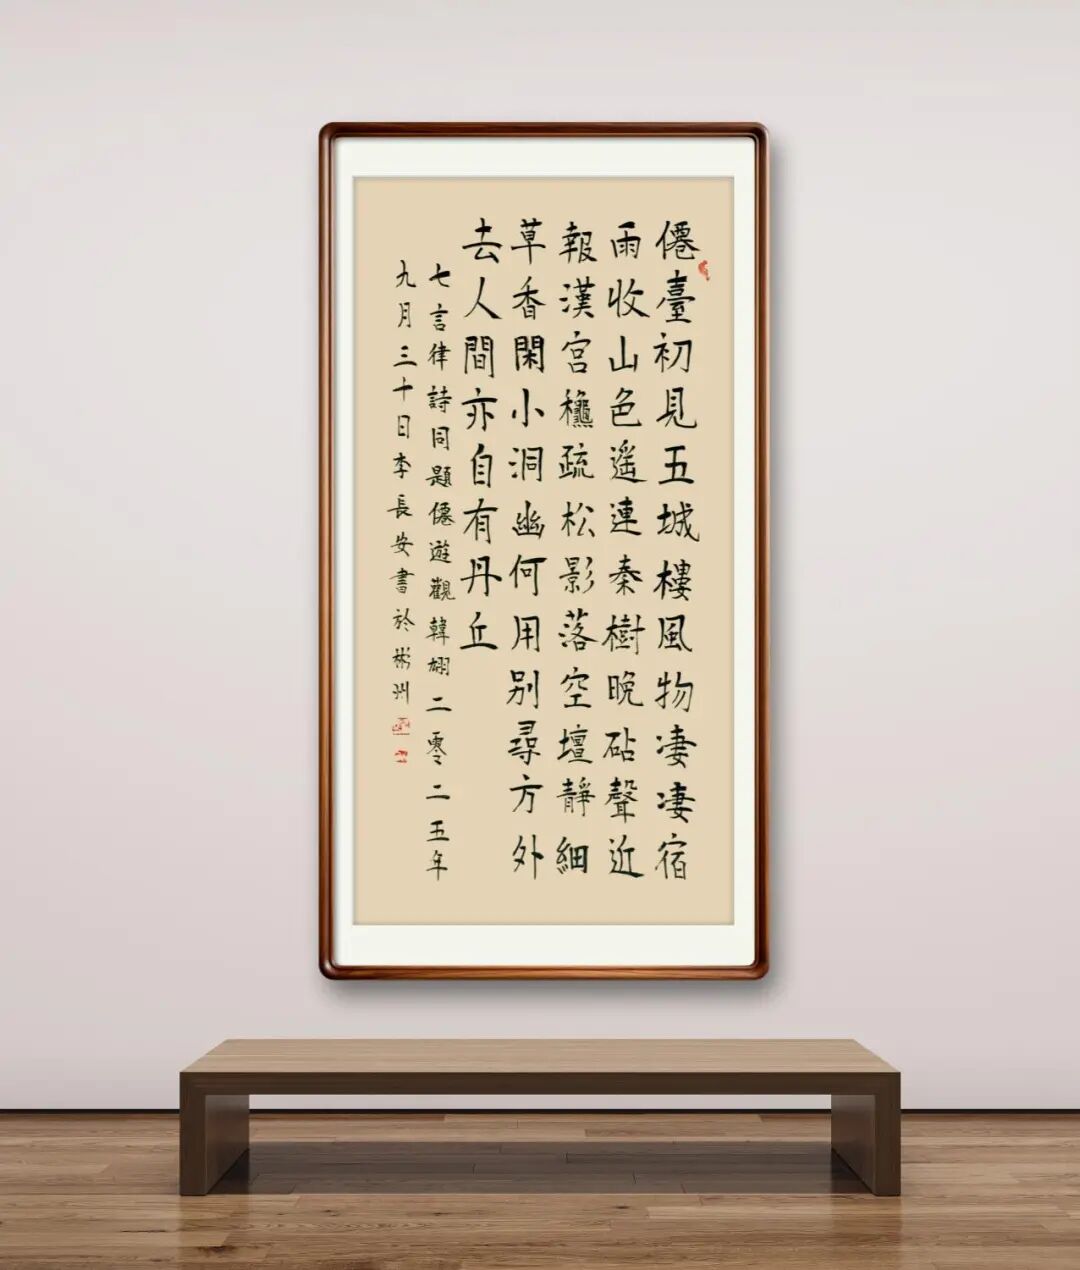 僊臺初見五城樓風物凄凄宿
雨收山色遙連秦樹晚砧聲近
報漢宮櫵疏松影落空壇靜細
草香閑小洞幽何用别尋方外
去人間亦自有丹丘
七言律詩同題僊遊觀韓翃二零二五年
九月三十日李長安書於彬州